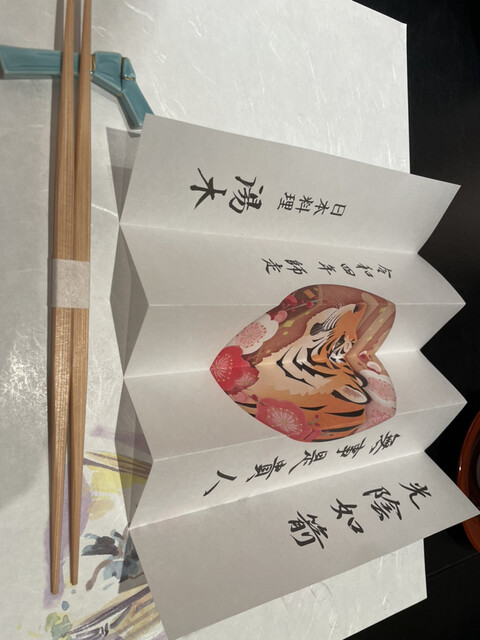 光陰如箭
無事是貴人
令和四年師走
日本料理 湯木